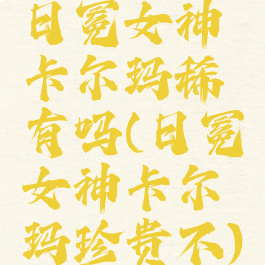 日冕女神
卡尔玛稀
有吗(日冕
女神卡尔
玛珍贵不)